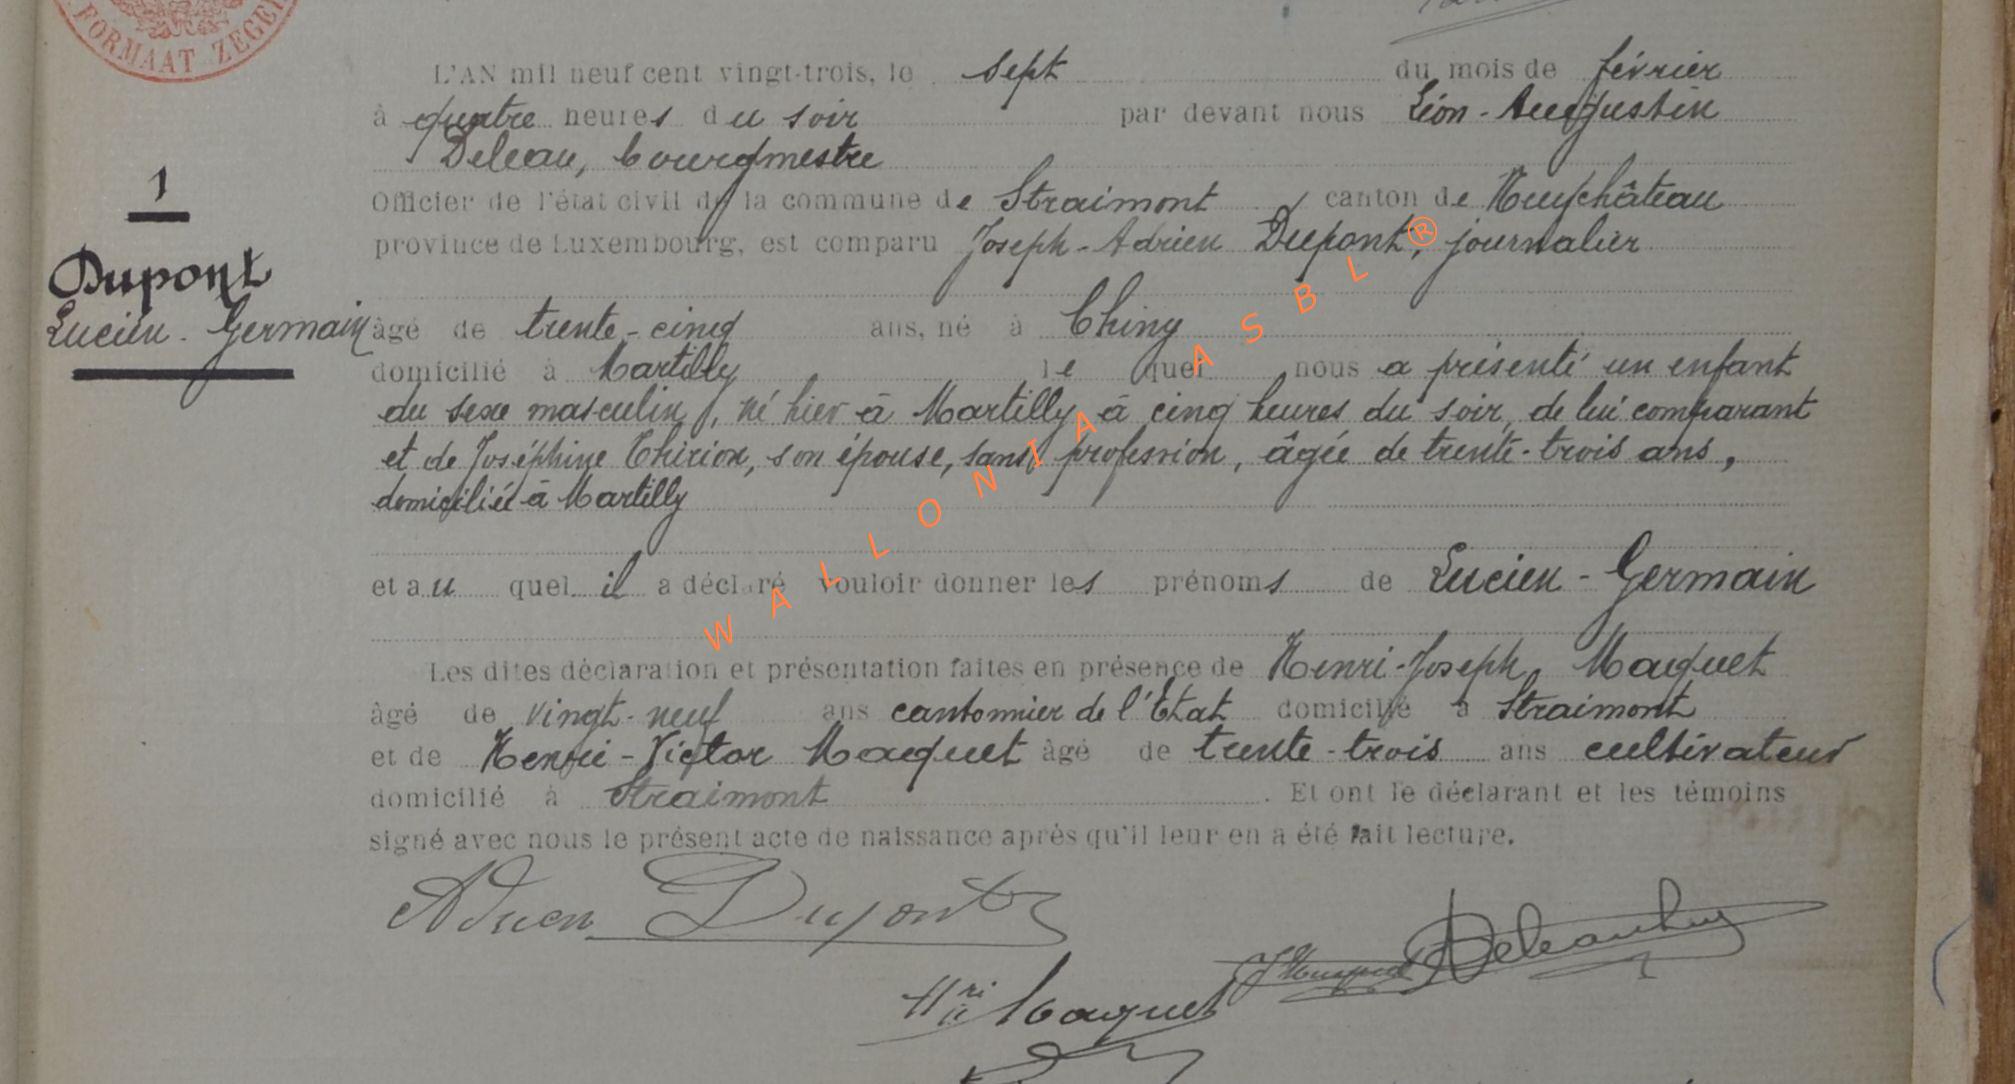 FORMAAT ZEGEL
L'AN mil neuf cent vingt-trois, le sept du mois de février
à quatre heures du soir par devant nous Léon-Augustin
Deleau, bourgmestre
Officier de l'état civil de la commune de Straimont, canton de Neufchâteau
province de Luxembourg, est comparu Joseph-Adrien Dupont, journalier
1
Dupont
Lucien-Germain
âgé de trente-cinq ans, né à Chiny
domicilié à Martilly lequel nous a présenté un enfant
du sexe masculin, né hier à Martilly à cinq heures du soir, de lui comparant
et de Joséphine Thirion, son épouse, sans profession, âgée de trente-trois ans,
domiciliée à Martilly
et auquel il a déclaré vouloir donner les prénoms de Lucien-Germain
Les dites déclaration et présentation faites en présence de Henri-Joseph Maquet
âgé de vingt-neuf ans cantonnier de l'Etat domicilié à Straimont
et de Henri-Victor Maquet âgé de trente-trois ans cultivateur
domicilié à Straimont. Et ont le déclarant et les témoins
signé avec nous le présent acte de naissance après qu'il leur en a été fait lecture.
Adrien Dupont
Hri Maquet
WALLONIA ASBL ®